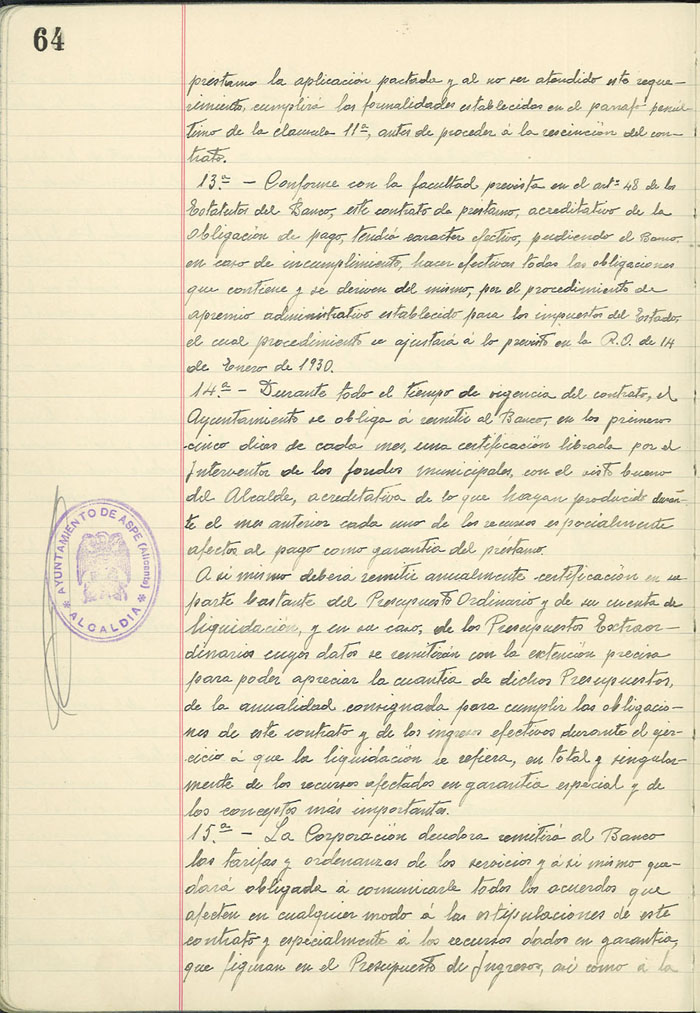 64
préstamo la aplicación pactada y al no ser atendido este reque-
rimiento, cumplirá las formalidades establecidas en el parrafo penúl-
timo de la clausula 11ª, antes de proceder á la rescinción del con-
trato.
13.ª - Conforme con la facultad prevista en el artº 48 de los
Estatutos del Banco, este contrato de préstamo, acreditativo de la
obligación de pago, tendrá caracter efectivo, pudiendo el Banco,
en caso de incumplimiento, hacer efectivas todas las obligaciones
que contiene y se deriven del mismo, por el procedimiento de
apremio administrativo establecido para los impuestos del Estado,
el cual procedimiento se ajustará á lo previsto en la R.O. de 14
de Enero de 1930.
14.ª - Durante todo el tiempo de vigencia del contrato, el
Ayuntamiento se obliga á remitir al Banco, en los primeros
cinco dias de cada mes, una certificación librada por el
Interventor de los fondos municipales, con el visto bueno
del Alcalde, acreditativa de lo que hayan producido duran-
te el mes anterior cada uno de los recursos especialmente
afectos al pago como garantia del préstamo.
A si mismo deberá remitir anualmente certificación en su
parte bastante del Presupuesto Ordinario y de su cuenta de
liquidación, y en su caso, de los Presupuestos Extraor-
dinarios cuyos datos se remitirán con la extención precisa
para poder apreciar la cuantia de dichos Presupuestos,
de la anualidad consignada para cumplir las obligacio-
nes de este contrato y de los ingresos efectivos durante el ejer-
cicio á que la liquidación se refiera, en total y singular-
mente de los recursos afectados en garantia especial y de
los conceptos más importantes.
15.ª - La Corporación deudora remitirá al Banco
las tarifas y ordenanzas de los servicios y á si mismo que-
dará obligada á comunicarle todos los acuerdos que
afecten en cualquier modo á las estipulaciones de este
contrato y especialmente á los recursos dados en garantia,
que figuran en el Presupuesto de Ingresos, asi como á la
AYUNTAMIENTO DE ASPE (Alicante)
* ALCALDIA *